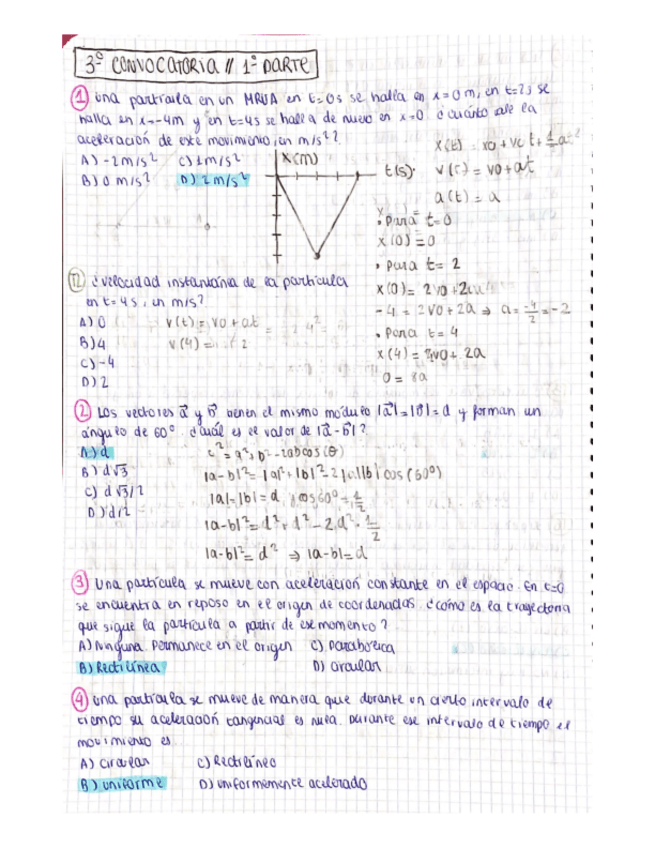 3ª CONVOCATORIA // 1ª PARTE
1 Una partícula en un MRUA en t=0s se halla en x=0m, en t=2s se
halla en x=-4m y en t=4s se halla de nuevo en x=0 ¿cuánto vale la
aceleración de este movimiento, en m/s²?
A) -2m/s² C) 1m/s²
B) 0 m/s² D) 2m/s²
x(m)
t(s)
v(t) = v0+at
a(t) = a
• para t=0
x(0)=0
• para t=2
-4 = 2v0+2a ⇒ a = -4/2 = -2
• para t=4
0 = 8a
¿velocidad instantánia de la partícula
en t=4s, en m/s?
A) 0 v(t)=v0+at
B) 4
C) -4
D) 2
2 Los vectores a⃗ y b⃗ tienen el mismo módulo |a⃗|=|b⃗|=d y forman un
ángulo de 60º ¿cuál es el valor de |a⃗-b⃗|?
A) d c²=a²+b²-2abcos(θ)
B) d√3 |a-b|²=|a|²+|b|²-2|a||b|cos(60º)
C) d√3/2 |a|=|b|=d, cos60º=1/2
D) d/2 |a-b|²=d²+d²-2d²·1/2
|a-b|²=d² ⇒ |a-b|=d
3 Una partícula se mueve con aceleración constante en el espacio. En t=0
se encuentra en reposo en el origen de coordenadas ¿cómo es la trayectoria
que sigue la partícula a partir de ese momento?
A) Ninguna. Permanece en el origen C) Parabólica
B) Rectilínea D) circular
4 Una partícula se mueve de manera que durante un cierto intervalo de
tiempo su aceleración tangencial es nula. Durante ese intervalo de tiempo el
movimiento es
A) circular C) Rectilíneo
B) uniforme D) uniformemente acelerado